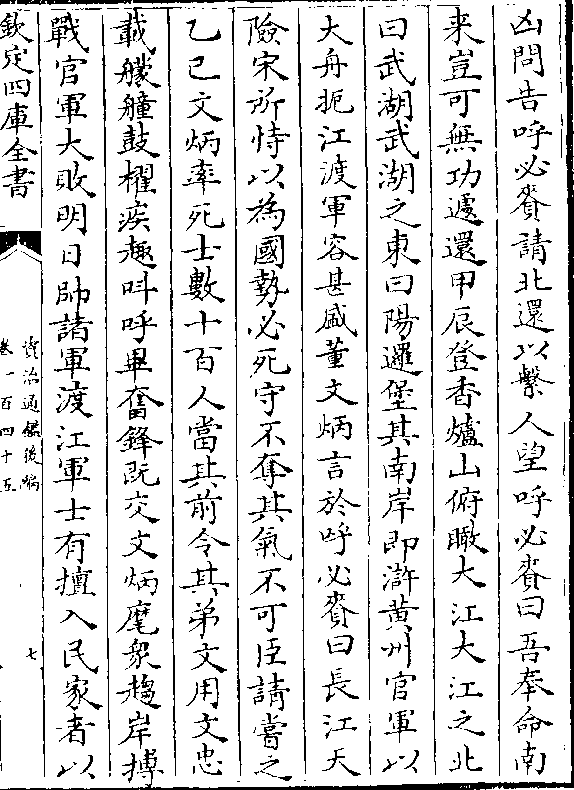 凶問告呼必賚請北還以繫人望呼必賚曰吾奉命南
来豈可無功遽還甲辰登香爐山俯瞰大江大江之北
曰武湖武湖之東曰陽邏堡其南岸即滸黄州官軍以
大舟扼江渡軍容甚盛董文炳言於呼必賚曰長江天
險宋所恃以為國勢必死守不奪其氣不可臣請嘗之
乙巳文炳率死士數十百人當其前令其弟文用文忠
載艨艟鼓櫂疾趣呌呼畢奮鋒既交文炳麾衆趨岸搏
戰官軍大敗明日帥諸軍渡江軍士有擅入民家者以
欽定四庫全書
資治通鑑後編
卷一百四十五
七